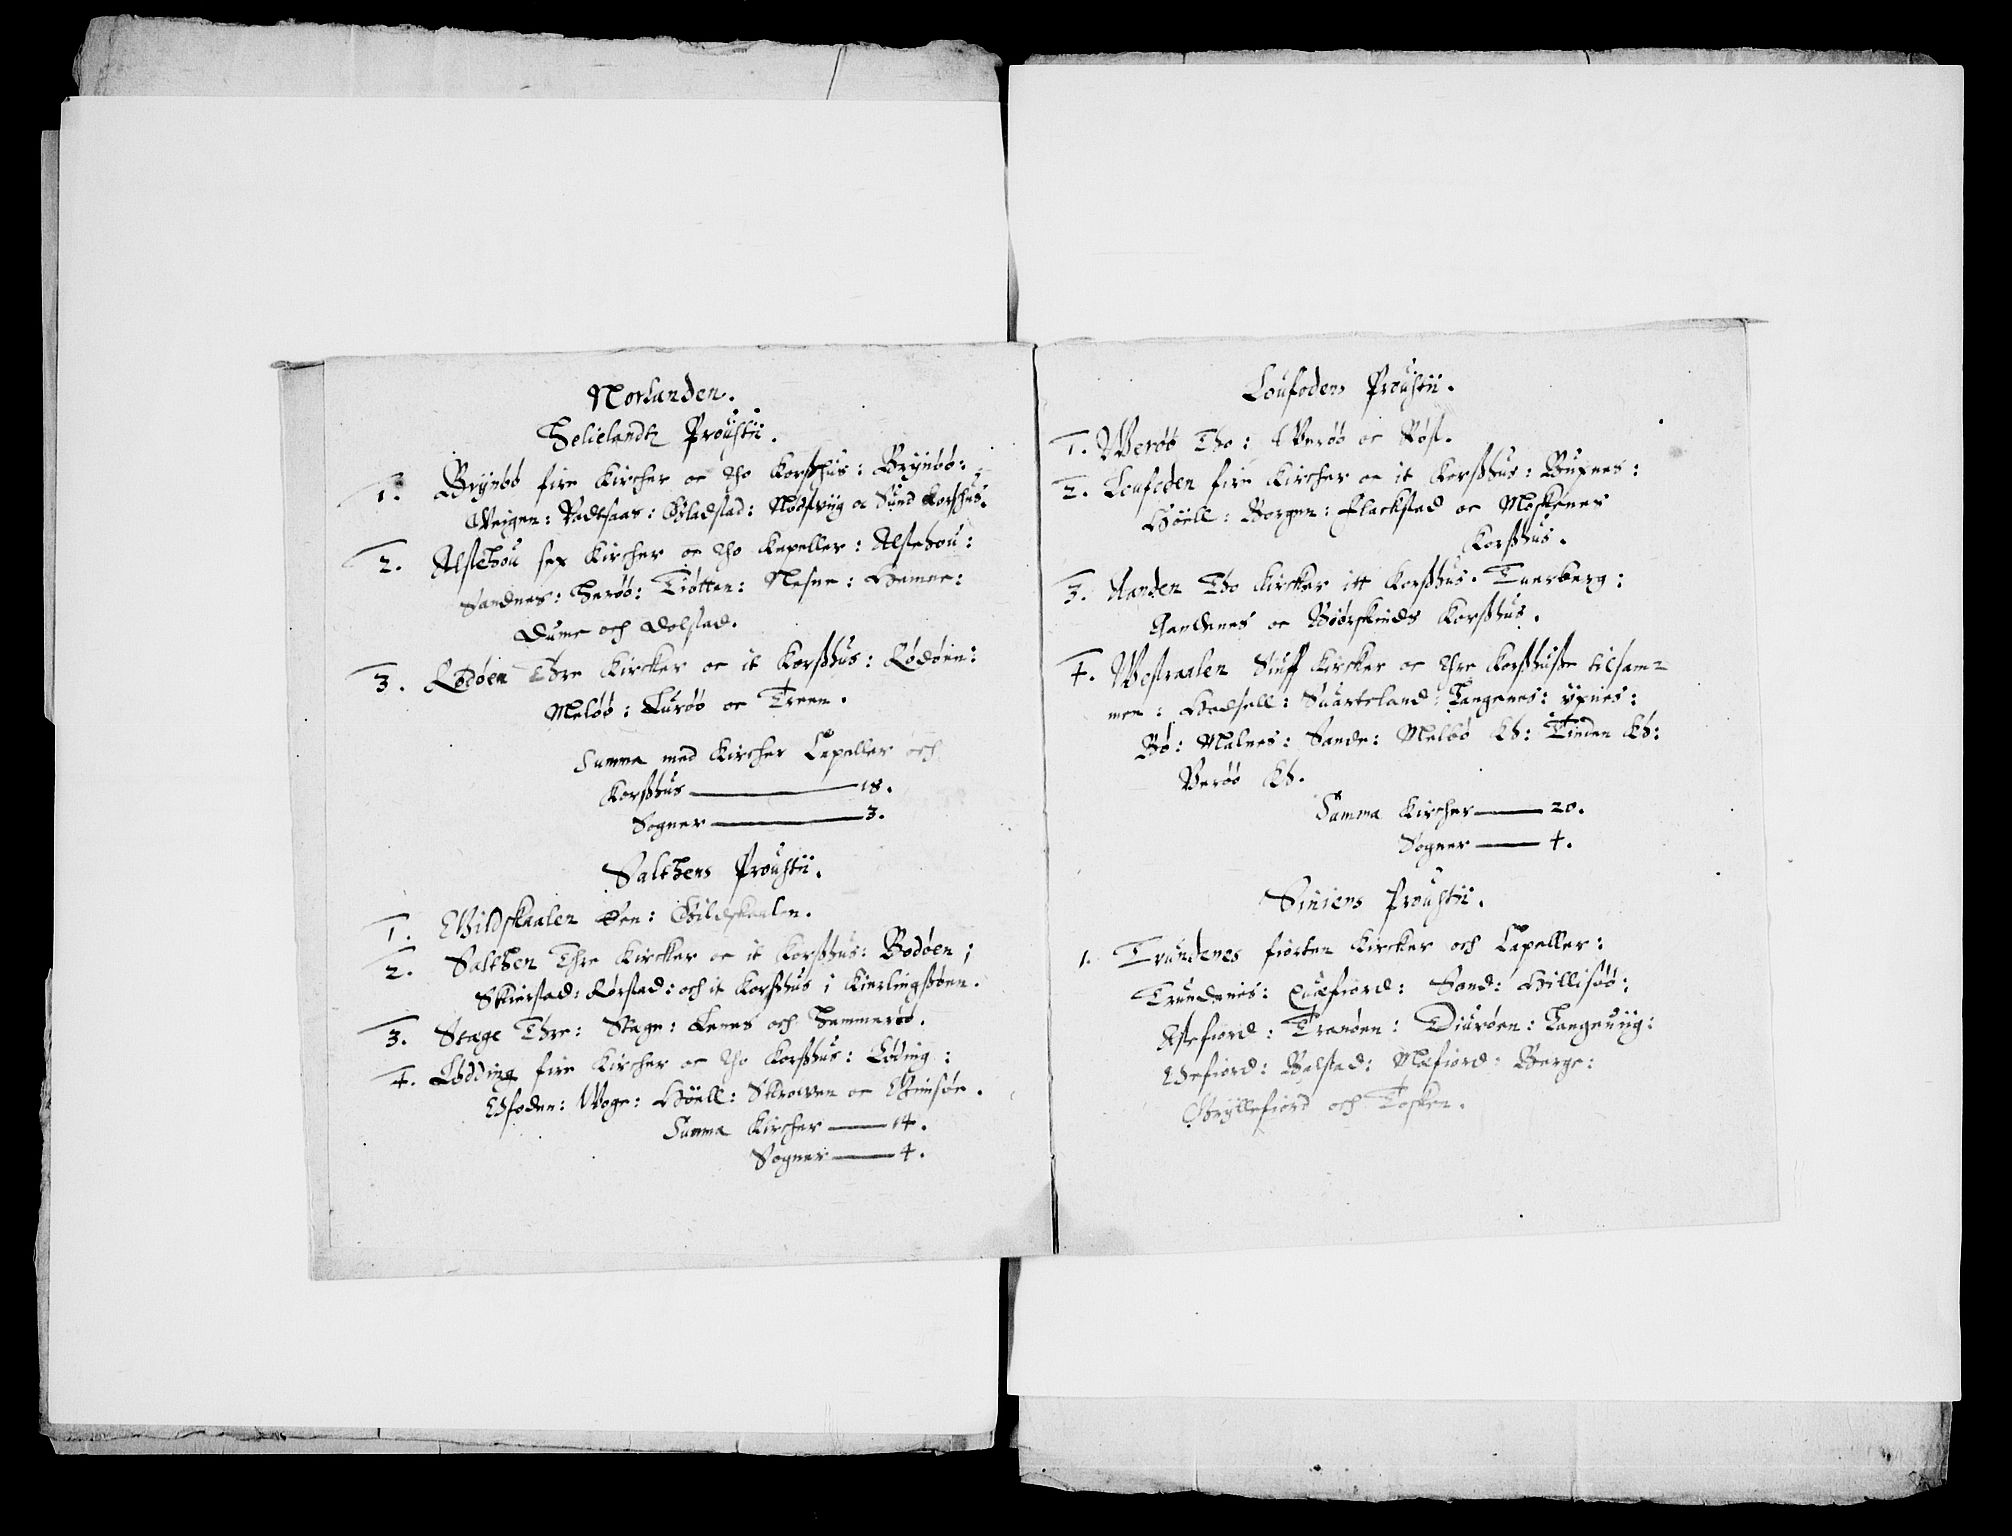 Norlanden.
Helielandtz Proustii.
1. Brynöö fire Kircher oc tho Korsshus: Brynöö:
Weigen: Vadtsaas: Bladstad: Nödtviig oc Sund Korsshus.
2. Alstehou sex Kircher oc tho Capeller: Alstehou:
Sandnes: Heröö: Tiøtten: Nesne: Hemne:
Dume och Dolstad.
3. Rödöen Thre Kircker oc it Korsshus: Rödöen:
Melöö: Luröö oc Treen.
Summa med Kircher Capeller och
Korsshus 18.
Sogner 3.
Salthens Proustii.
1. Gildskaalen Een: Gildskaalen.
2. Salthen Thre Kircker oc it Korsshus: Bodöen;
Skierstad: Rörstad: och it Korsshus i Kierlingssöen.
3. Stege Thre: Stege: Lenes och Hammeröö.
4. Lödding fire Kircher oc tho Korsshus: Löding:
Offoden: Woge: Höell: Skrowen oc Gimsöe.
Summa Kircher 14.
Sogner 4.
Loufodens Proustii.
1. Weröö Tho: Veröö oc Röst.
2. Loufoden fire Kircher oc it Korsshus: Buxnes:
Höell: Borgen: Flackstad oc Moskenes
Korsshus.
3. Aanden Tho Kircker itt Korsshus. Tuerberg:
Aandenes oc Biörskinds Korsshus.
4. Westraalen Siuff Kircker oc thre Korsshusse tilsam-
men: Hadsell: Suarteland: Langenes: Ypnes:
Bö: Malnes: Sande: Melbö Kh: Tinden Kh:
Veröö Kh.
Summa Kircher 20.
Sogner 4.
Siniens Proustii.
1. Trundenes fiorten Kircker och Capeller:
Trundenis: Quefiord: Sand: Hillisöö:
Astefiord: Tranöen: Diuröen: Langeuiig:
Ofefiord: Balstad: Mefiord: Berge:
Gryllefiord och Tosken.